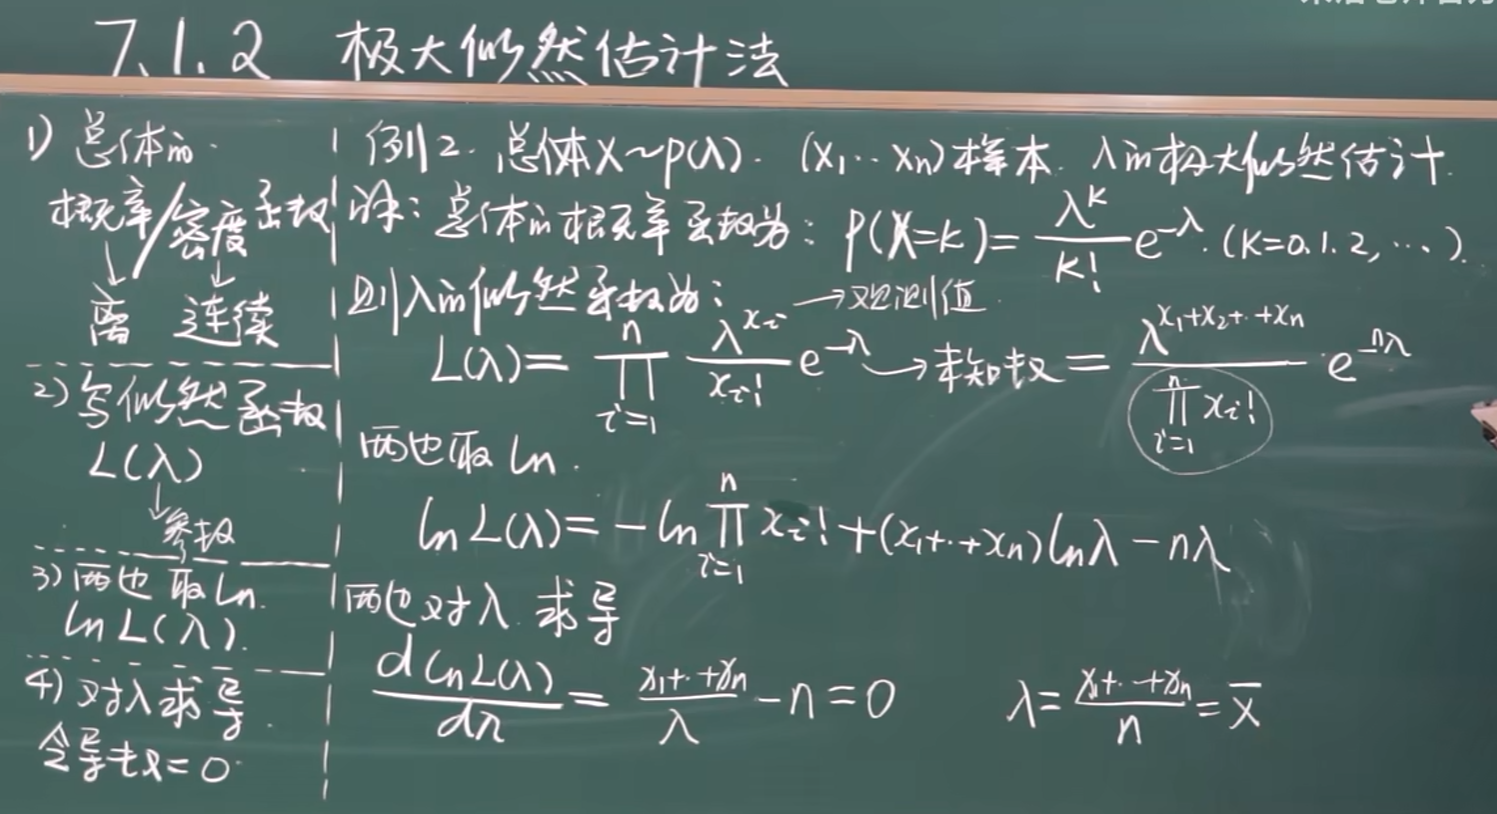 7.1.2 极大似然估计法
1) 总体的
概率/密度函数
↓ ↓
离 连续
2) 写似然函数
L(λ)
↓
参数
3) 两边取ln.
ln L(λ).
4) 对λ求导.
令导数=0
例2. 总体X~p(λ). (x₁…xₙ)样本. λ的极大似然估计.
解: 总体的概率函数为: P(X=k)=\frac{λ^k}{k!}e^{-λ}. (k=0.1.2,…).
则λ的似然函数为: →观测值.
L(λ)=\prod_{i=1}^{n}\frac{λ^{x_i}}{x_i!}e^{-λ}→未知数=\frac{λ^{x_1+x_2+..+x_n}}{\prod_{i=1}^{n}x_i!}·e^{-nλ}
两边取ln.
ln L(λ)=-ln\prod_{i=1}^{n}x_i!+(x_1+..+x_n)lnλ-nλ
两边对λ求导
\frac{d ln L(λ)}{dλ}=\frac{x_1+..+x_n}{λ}-n=0 λ=\frac{x_1+..+x_n}{n}=\overline{x}